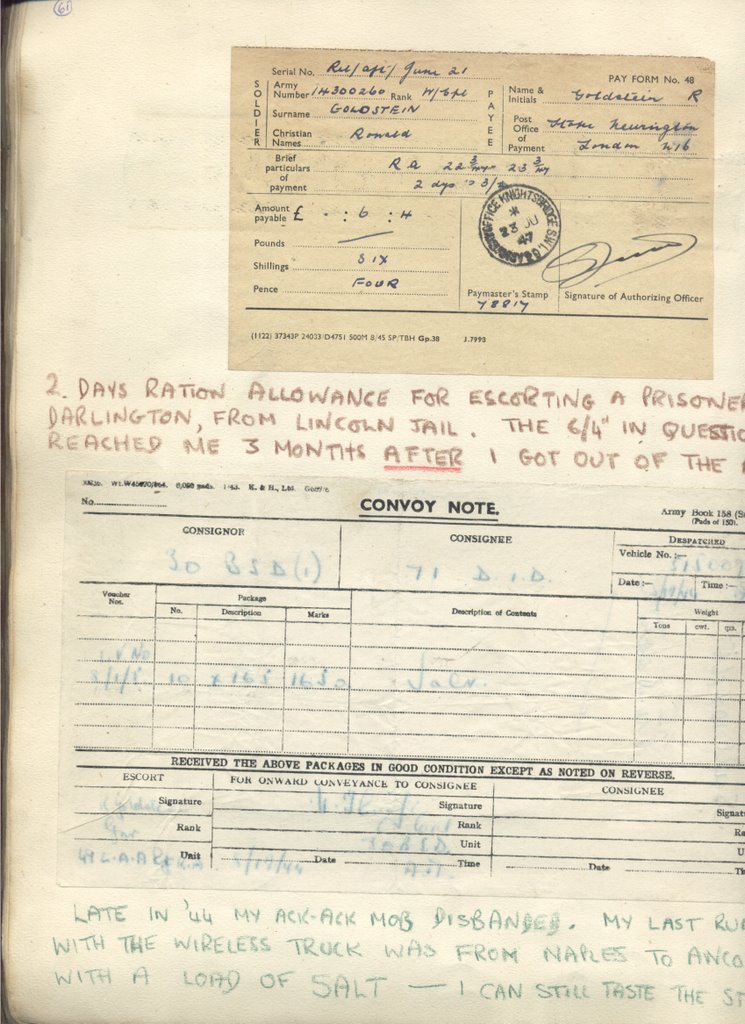 61
Serial No. Rel/aft/June 21
PAY FORM No. 48
SOLDIER
Army Number 14300260 Rank W/Cpl
Surname GOLDSTEIN
Christian Names Ronald
PAYEE
Name & Initials Goldstein R
Post Office of Payment Stoke Newington London N16
Brief particulars of payment RA 22 3/47 23 3/47
2 dys @ 3/2
Amount payable £ - : 6 : 4
Pounds
Shillings SIX
Pence FOUR
OFFICE KNIGHTSBRIDGE S.W.1.
23 JU
47
Paymaster's Stamp
78817
Signature of Authorizing Officer
(1122) 37343P 24033/D4751 500M 8/45 SP/TBH Gp.38 J.7993
2. DAYS RATION ALLOWANCE FOR ESCORTING A PRISONE
DARLINGTON, FROM LINCOLN JAIL. THE 6/4" IN QUESTIO
REACHED ME 3 MONTHS AFTER I GOT OUT OF THE
No.
CONVOY NOTE.
Army Book 158 (S
(Pads of 150).
CONSIGNOR
30 BSD(1)
CONSIGNEE
71 D.I.D.
DESPATCHED
Vehicle No.:—
Date:— Time:—
Voucher Nos.
Package
No. Description Marks
Description of Contents
Weight
Tons cwt. qrs.
10 x 163 1630 Salt.
RECEIVED THE ABOVE PACKAGES IN GOOD CONDITION EXCEPT AS NOTED ON REVERSE.
ESCORT
FOR ONWARD CONVEYANCE TO CONSIGNEE
CONSIGNEE
Signature
Signature
Signat
Rank
Rank
Ra
Unit
Unit
U
Date Time
Date Ti
LATE IN '44 MY ACK-ACK MOB DISBANDED. MY LAST RU
WITH THE WIRELESS TRUCK WAS FROM NAPLES TO ANCO
WITH A LOAD OF SALT — I CAN STILL TASTE THE ST